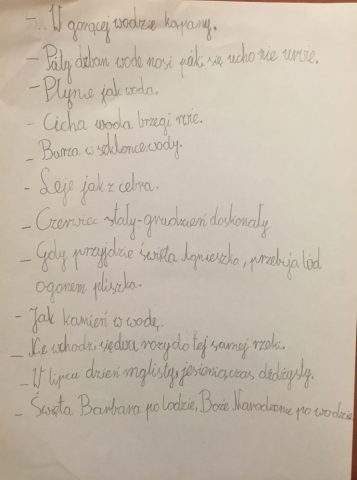 - W gorącej wodzie kąpany.
- Póty dzban wodę nosi póki się ucho nie urwie.
- Płynie jak woda.
- Cicha woda brzegi rwie.
- Burza w szklance wody.
- Leje jak z cebra.
- Czerwiec stały - grudzień doskonały
- Gdy przyjdzie święta Agnieszka, przebija lód
ogonem pliszka.
- Jak kamień w wodę.
- Nie wchodzi się dwa razy do tej samej rzeki.
- W lipcu dzień mglisty, jesienią czas dżdżysty.
- Święta Barbara po lodzie, Boże Narodzenie po wodzie